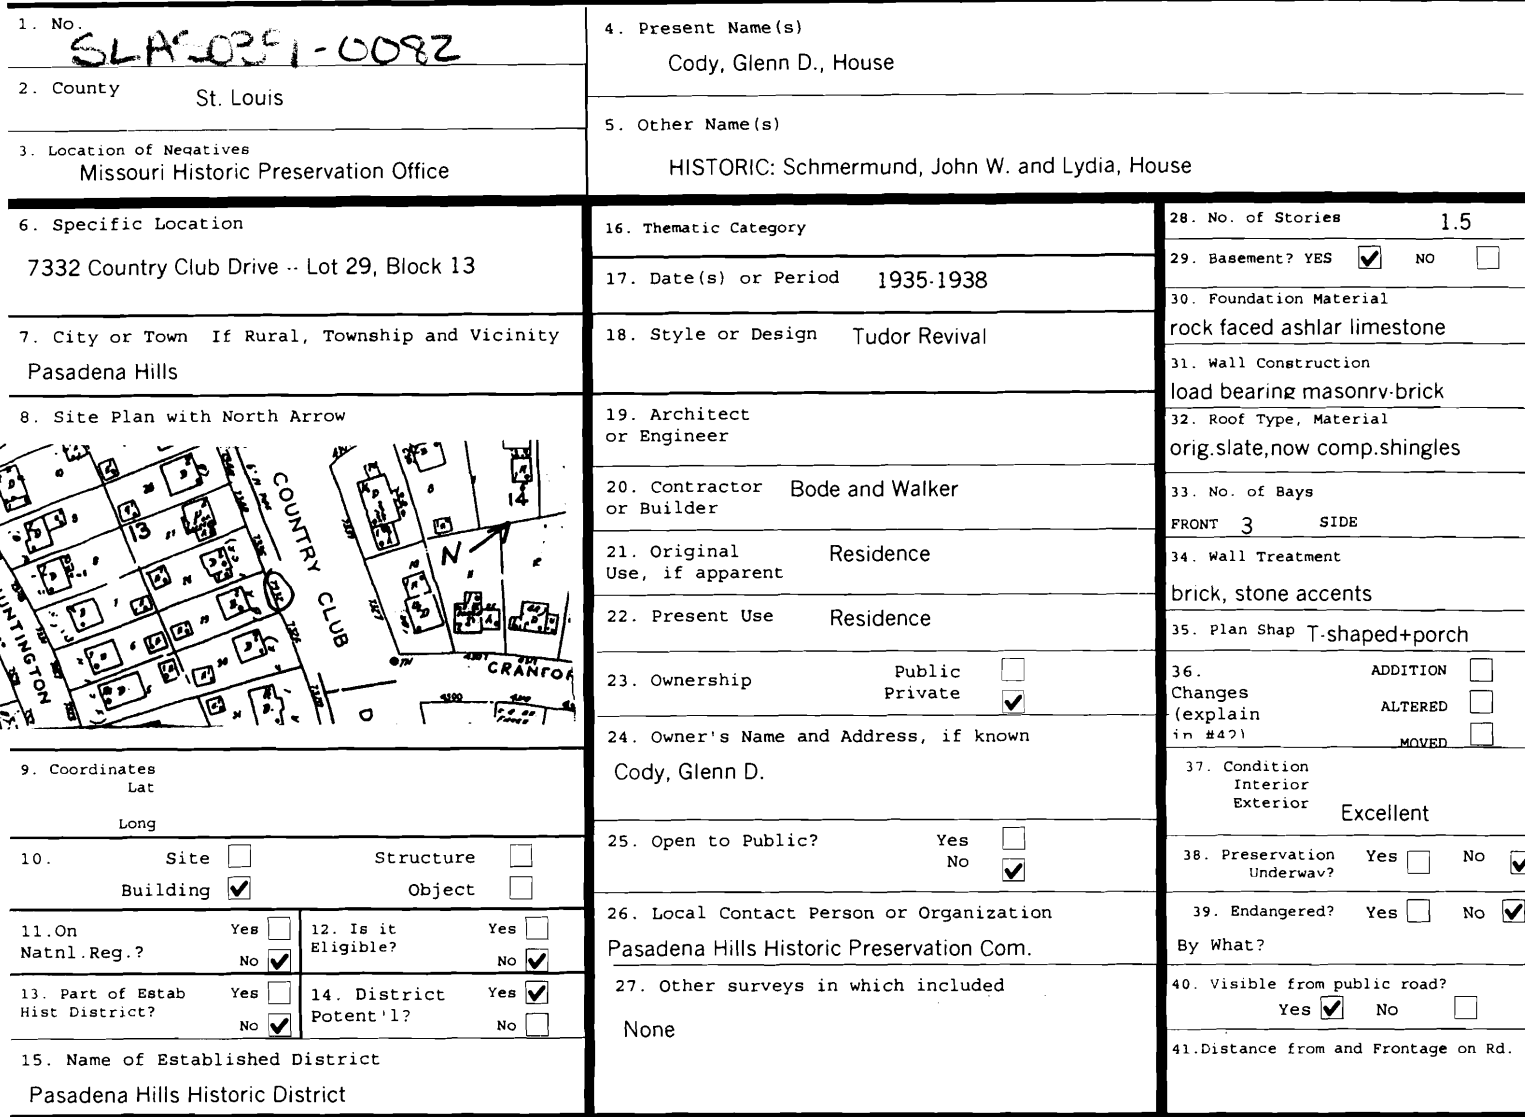 1. No.
SLAS0351-0082
2. County
St. Louis
3. Location of Negatives
Missouri Historic Preservation Office
4. Present Name(s)
Cody, Glenn D., House
5. Other Name(s)
HISTORIC: Schmermund, John W. and Lydia, House
6. Specific Location
7332 Country Club Drive -- Lot 29, Block 13
7. City or Town If Rural, Township and Vicinity
Pasadena Hills
8. Site Plan with North Arrow
COUNTRY CLUB
13
14
N
7332
UNTINGTON
CRANFOR
D
9. Coordinates
Lat
Long
10. Site Structure
Building Object
11.On Natnl.Reg.? Yes No
12. Is it Eligible? Yes No
13. Part of Estab Hist District? Yes No
14. District Potent'l? Yes No
15. Name of Established District
Pasadena Hills Historic District
16. Thematic Category
17. Date(s) or Period 1935-1938
18. Style or Design Tudor Revival
19. Architect
or Engineer
20. Contractor Bode and Walker
or Builder
21. Original Residence
Use, if apparent
22. Present Use Residence
23. Ownership Public
Private
24. Owner's Name and Address, if known
Cody, Glenn D.
25. Open to Public? Yes
No
26. Local Contact Person or Organization
Pasadena Hills Historic Preservation Com.
27. Other surveys in which included
None
28. No. of Stories 1.5
29. Basement? YES NO
30. Foundation Material
rock faced ashlar limestone
31. Wall Construction
load bearing masonry-brick
32. Roof Type, Material
orig.slate,now comp.shingles
33. No. of Bays
FRONT 3 SIDE
34. Wall Treatment
brick, stone accents
35. Plan Shap T-shaped+porch
36. ADDITION
Changes
(explain ALTERED
in #42) MOVED
37. Condition
Interior
Exterior Excellent
38. Preservation Yes No
Underway?
39. Endangered? Yes No
By What?
40. Visible from public road?
Yes No
41.Distance from and Frontage on Rd.